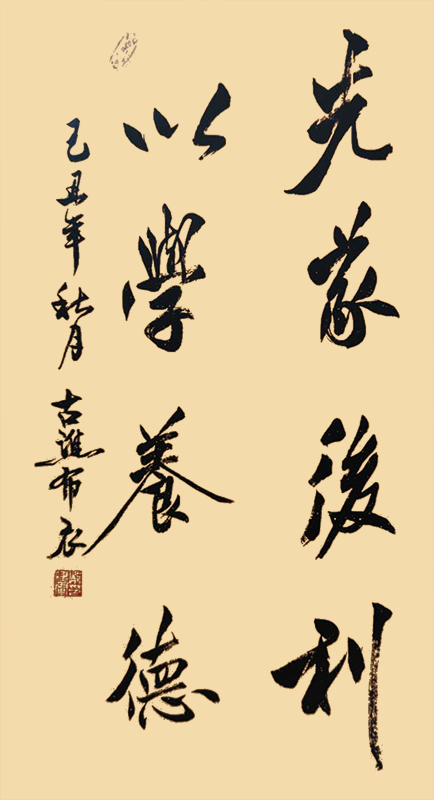 先義後利
以學養德
己丑年秋月古譙布衣